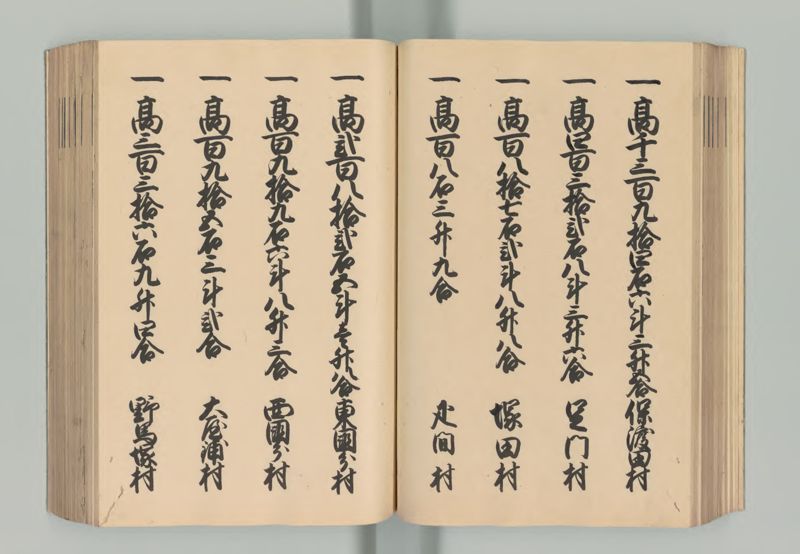 一 高千三百九拾四石六斗三升五合 保渡田村
一 高四百三拾弐石八斗三升六合 足門村
一 高百八拾七石弐斗八升八合 塚田村
一 高百八石三升九合 疋間村
一 高弐百八拾弐石五斗壱升八合 東国分村
一 高百九拾九石六斗八升三合 西国分村
一 高百九拾五石三斗弐合 大屋浦村
一 高三百三拾六石九升四合 野馬塚村